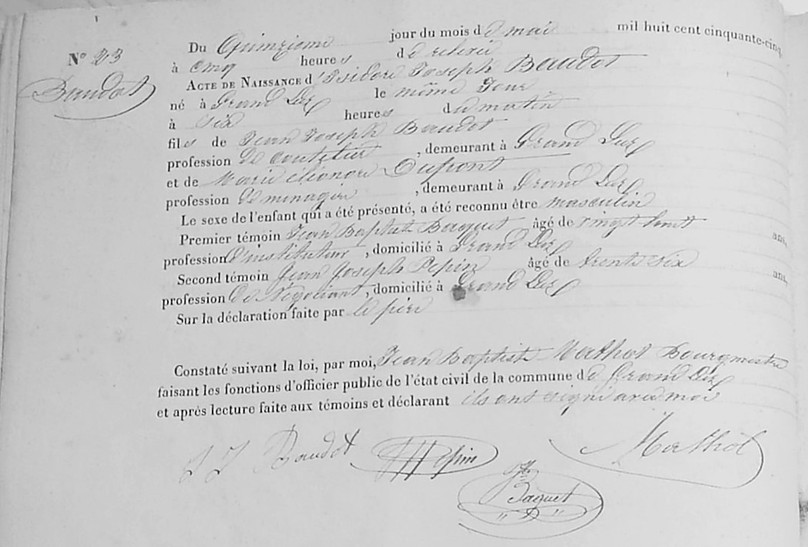 Du Quinzieme jour du mois d de mai mil huit cent cinquante-cinq,
N° 23
à cinq heures d de relevée
Baudot
ACTE DE NAISSANCE d'Isidore Joseph Baudot
né à Grand Leez le même jour
à six heures du matin
fils de Jean Joseph Baudot
profession de , demeurant à Grand Leez
et de Marie Dupont
profession de ménagère , demeurant à Grand Leez
Le sexe de l'enfant qui a été présenté, a été reconnu être masculin
Premier témoin Jean Baptiste Baquet âgé de vingt huit ans,
profession d'instituteur , domicilié à Grand Leez
Second témoin Jean Joseph Pepin âgé de trente six ans,
profession de Négociant , domicilié à Grand Leez
Sur la déclaration faite par le père
Constaté suivant la loi, par moi, Jean Baptiste Mathot Bourgmestre
faisant les fonctions d'officier public de l'état civil de la commune d de Grand Leez
et après lecture faite aux témoins et déclarant ils ont signé avec moi
J J Baudot Pepin Mathot
Baquet